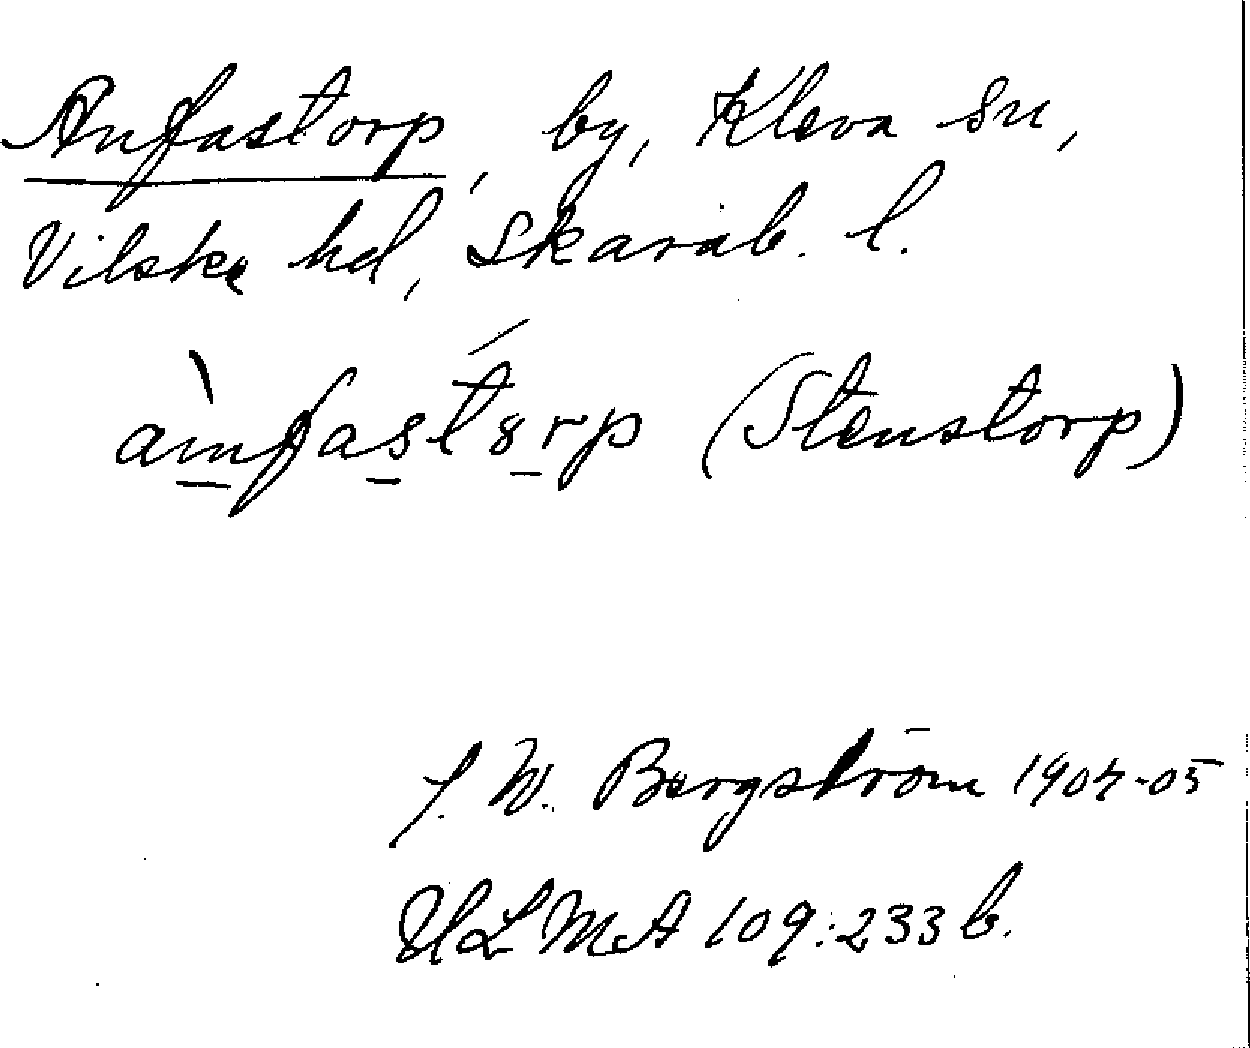 Anfastorp, by, Kleva sn,
Vilske hd, Skarab. l.
àmfastórp (Stenstorp)
J. W. Bergström 1904-05
ULMA 109:233 b.